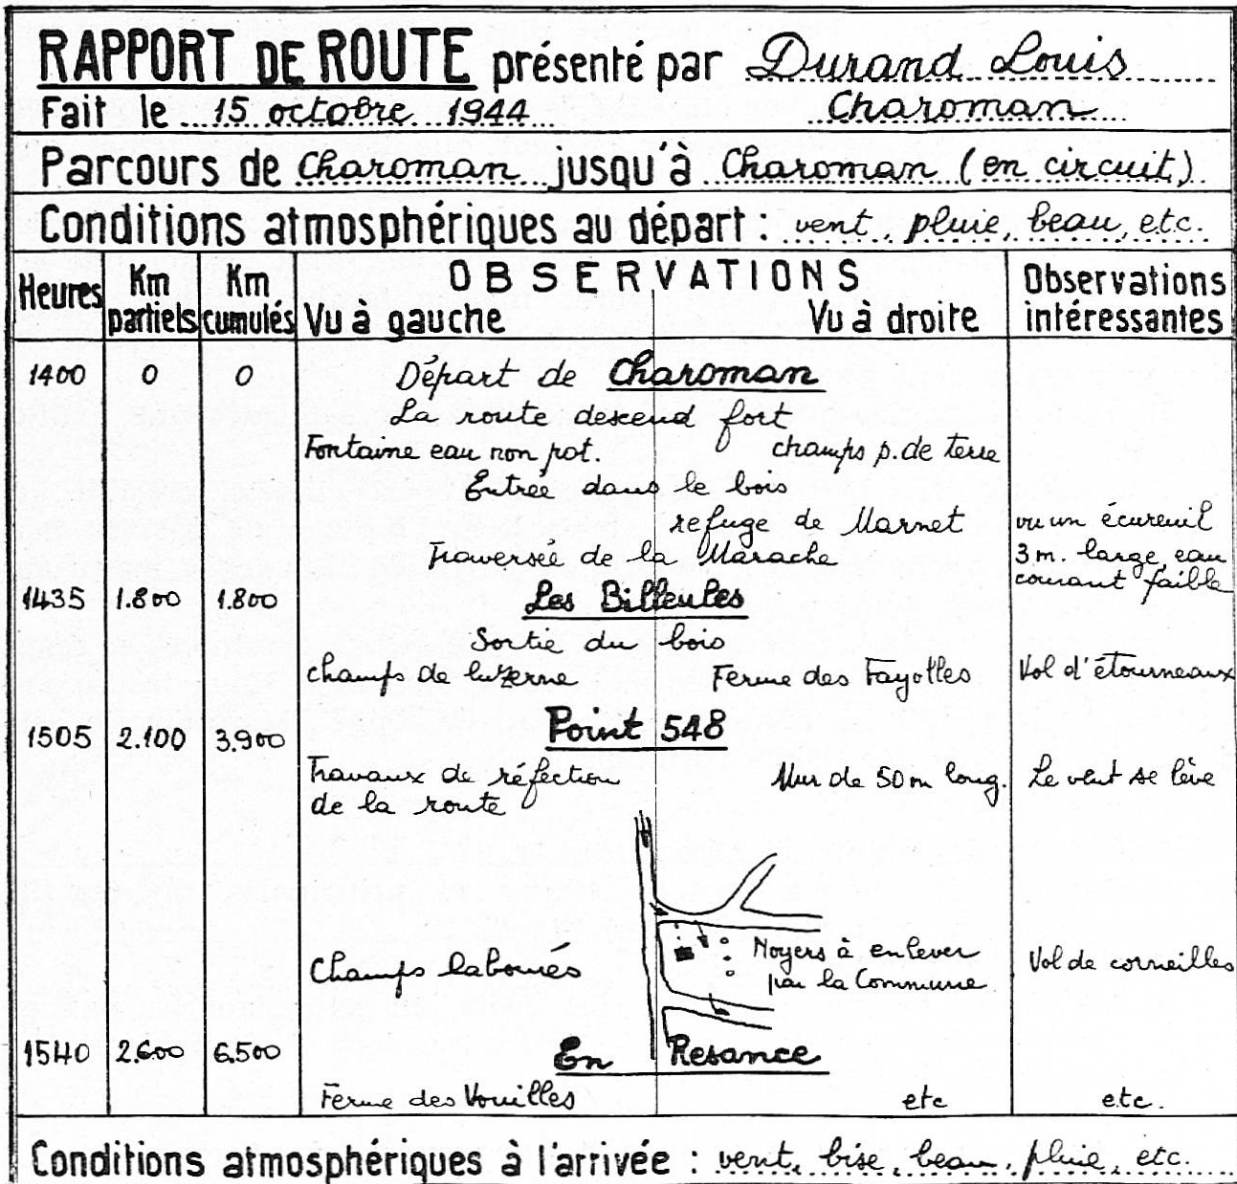 RAPPORT DE ROUTE présenté par Durand Louis
Fait le 15 octobre 1944 Charoman
Parcours de Charoman jusqu'à Charoman (en circuit)
Conditions atmosphériques au départ : vent, pluie, beau, etc.
Heures Km partiels Km cumulés OBSERVATIONS Observations intéressantes
Vu à gauche Vu à droite
1400 0 0 Départ de Charoman
La route descend fort
Fontaine eau non pot. champs p. de terre
Entrée dans le bois
refuge de Marnet vu un écureuil
Traversée de la Marache 3 m. large, eau
courant faible
1435 1.800 1.800 Les Billeules
Sortie du bois
champs de luzerne Ferme des Fayolles Vol d'étourneaux
1505 2.100 3.900 Point 548
Travaux de réfection Mur de 50 m long. Le vent se lève
de la route
Champs labourés Noyers à enlever Vol de corneilles
par la Commune
1540 2.600 6.500 En Resance
Ferme des Vouilles etc etc.
Conditions atmosphériques à l'arrivée : vent, bise, beau, pluie, etc.